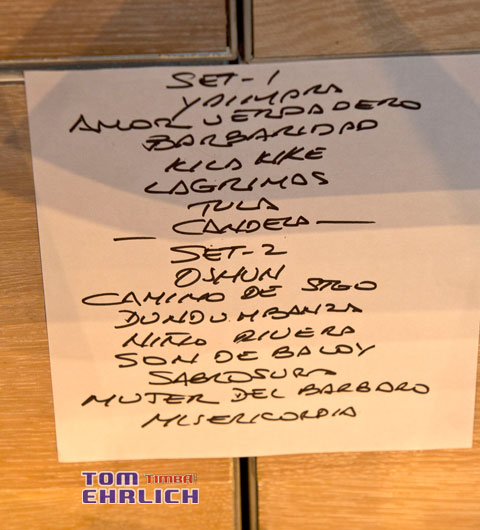 SET-1
YAIIMARA
AMOR VERDADERO
BARBARIDAD
KILA KIKE
LAGRIMAS
TULA
— CANDELA —
SET-2
OSHUN
CAMINO DE STGO
DUNDUMBANZA
NIÑO RIVERA
SON DE BALOY
SABROSURA
MUJER DEL BARBARO
MISERICORDIA
TOM TIMBA!
EHRLICH